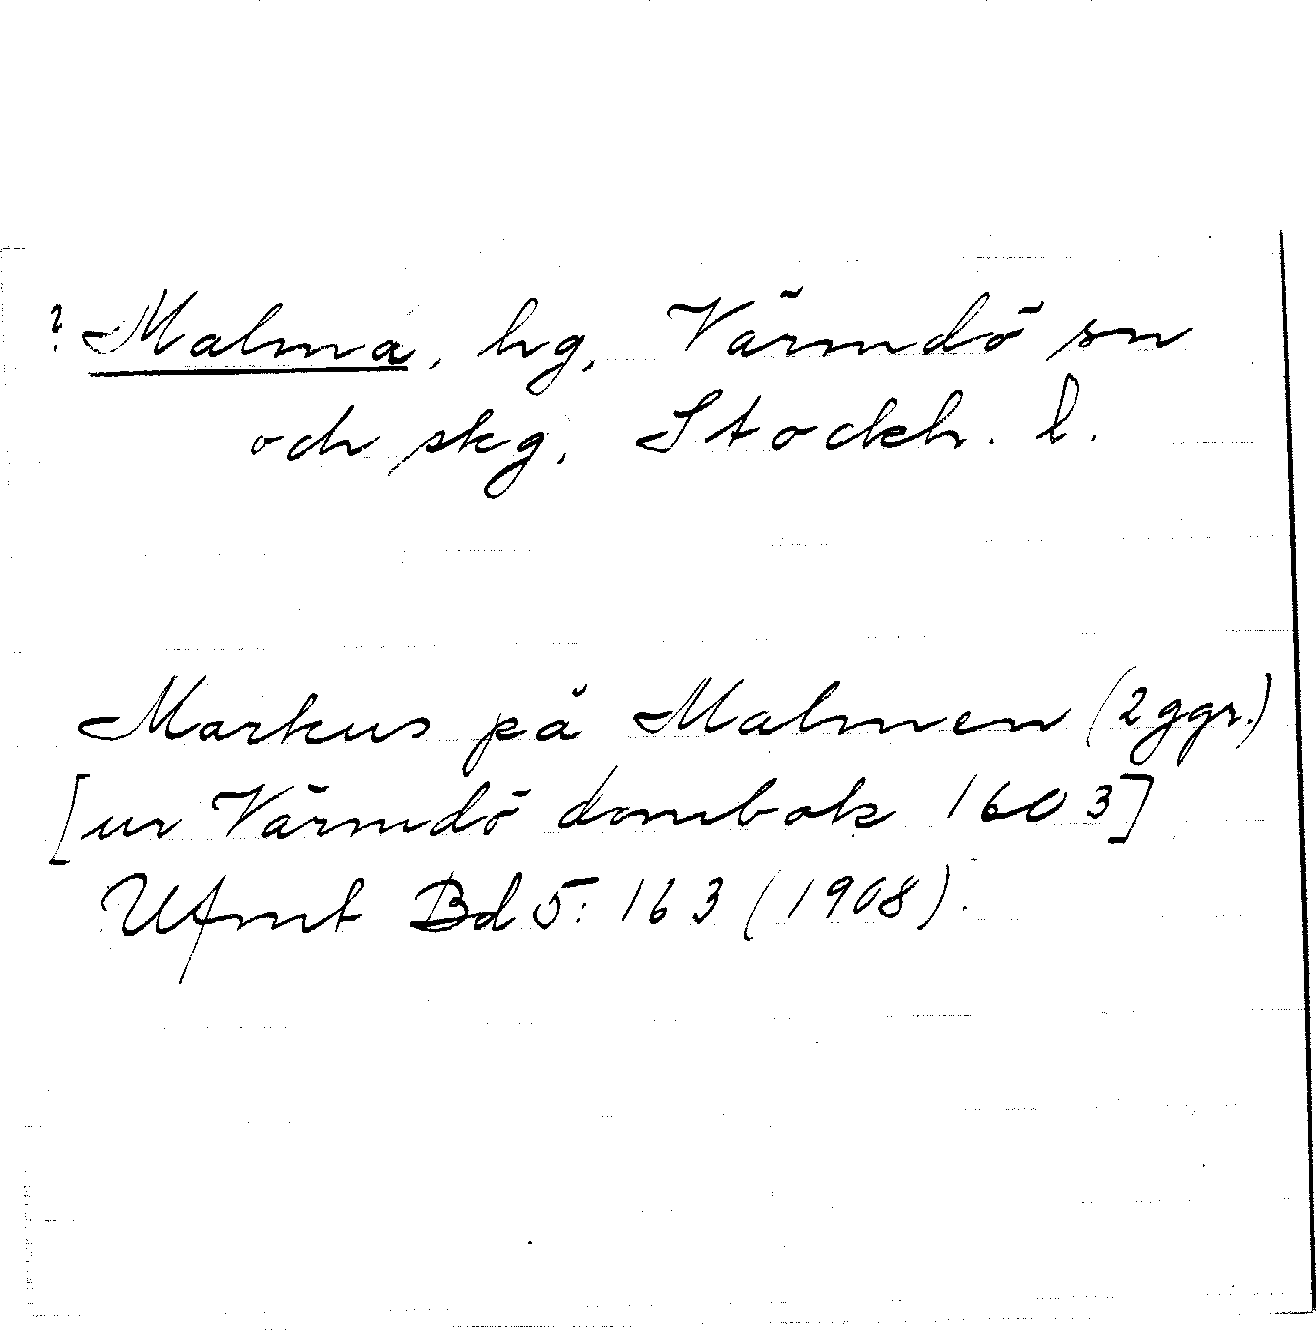 ? Malma, hg, Värmdö sn
och skg, Stockh. l.
Markus på Malmen (2 ggr.)
[ur Värmdö dombok 1603]
Ufmt Bd 5: 163 (1908).